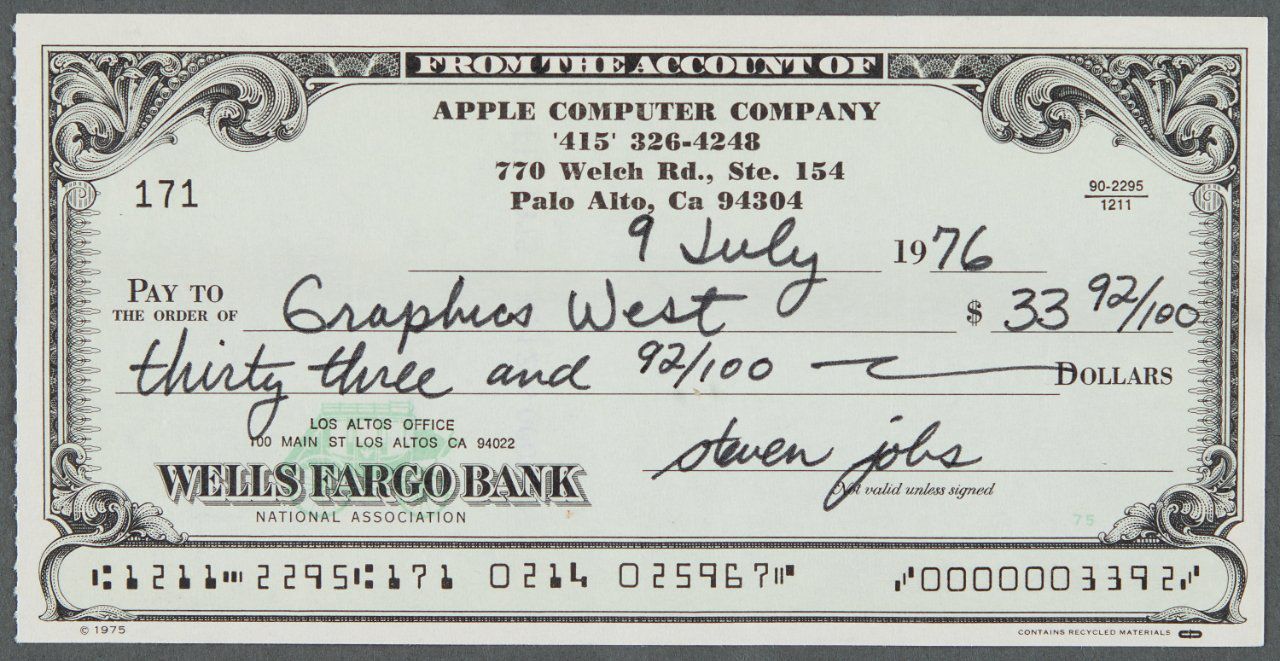 FROM THE ACCOUNT OF
APPLE COMPUTER COMPANY
'415' 326-4248
770 Welch Rd., Ste. 154
Palo Alto, Ca 94304
171
90-2295
1211
9 July 1976
PAY TO THE ORDER OF Graphics West $ 33 92/100
thirty three and 92/100 DOLLARS
LOS ALTOS OFFICE
100 MAIN ST LOS ALTOS CA 94022
WELLS FARGO BANK
NATIONAL ASSOCIATION
steven jobs
Not valid unless signed
75
⑆1211⑉2295⑆171 0214 025967⑈ ⑇0000003392⑇
© 1975
CONTAINS RECYCLED MATERIALS